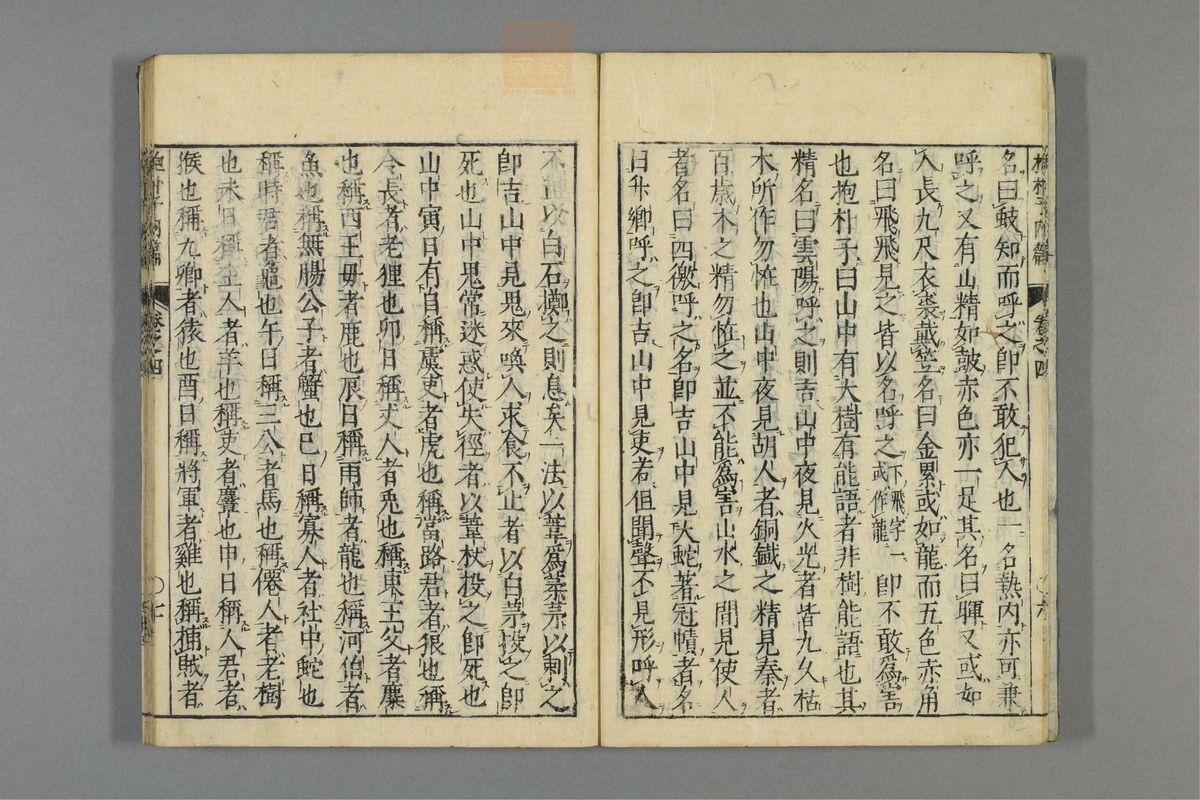 抱朴子内篇 卷之四 〇六
名曰蚑知而呼之卽不敢犯人也一名熱内亦可兼
呼之又有山精如鼓赤色亦一足其名曰暉又或如
人長九尺衣裘戴笠名曰金累或如龍而五色赤角
名曰飛飛見之皆以名呼之下飛字一或作龍卽不敢爲害
也抱朴子曰山中有大樹有能語者非樹能語也其
精名曰雲陽呼之則吉山中夜見火光者皆九久枯
木所作勿恠也山中夜見胡人者銅鐵之精見秦者
百歳木之精勿恠之並不能爲害山水之間見使人
者名曰四徼呼之名卽吉山中見大蛇著冠幘者名
曰升卿呼之卽吉山中見吏若但聞聲不見形呼人
不止以白石擲之則息矣一法以葦爲茅以刺之
卽吉山中見鬼來喚人求食不止者以白茅投之卽
死也山中鬼常迷惑使失徑者以葦杖投之卽死也
山中寅日有自稱虞吏者虎也稱當路君者狼也稱
令長者老狸也卯日稱丈人者兎也稱東王父者麋
也稱西王母者鹿也辰日稱雨師者龍也稱河伯者
魚也稱無腸公子者蟹也巳日稱寡人者社中蛇也
稱時君者龜也午日稱三公者馬也稱僊人者老樹
也未日稱主人者羊也稱吏者麞也申日稱人君者
猴也稱九卿者猿也酉日稱將軍者雞也稱捕賊者
抱朴子内篇 卷之四 〇七